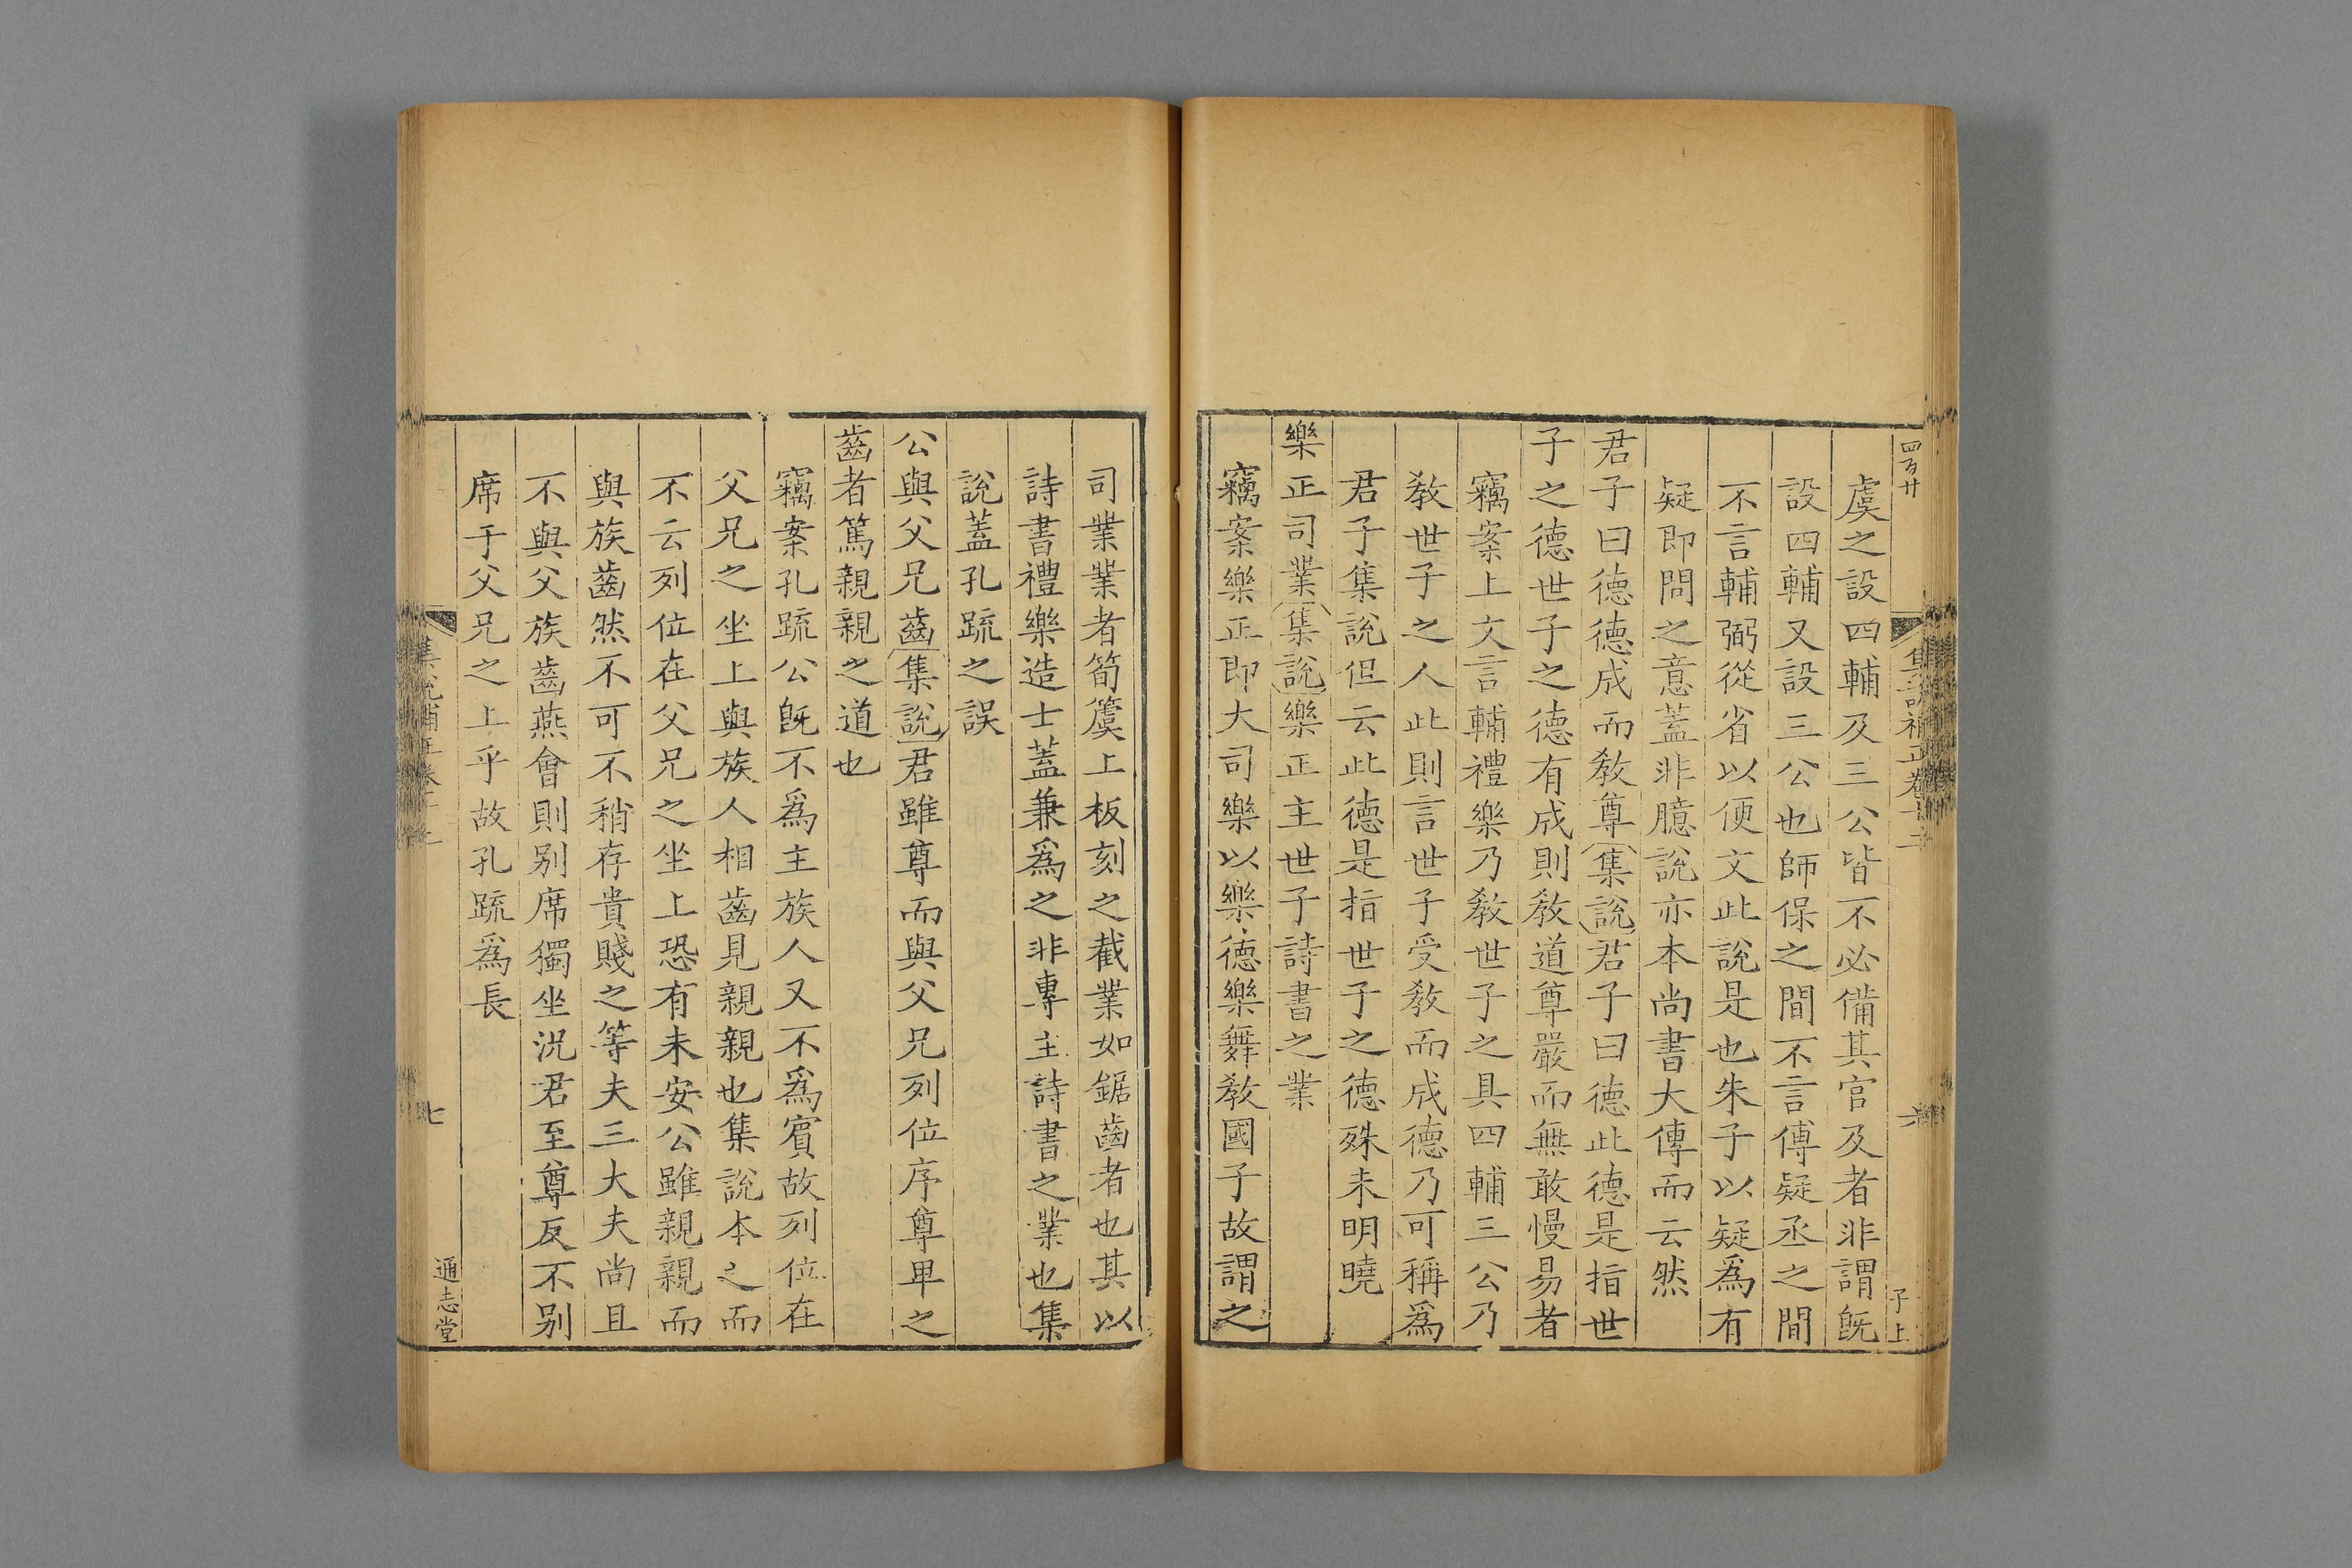 四百廿
集說補正卷十二
六
子上
虞之設四輔及三公皆不必備其官及者非謂旣
設四輔又設三公也師保之間不言傅疑丞之間
不言輔弼從省以便文此說是也朱子以疑爲有
疑即問之意蓋非臆說亦本尚書大傳而云然
君子曰德德成而敎尊集說君子曰德此德是指世
子之德世子之德有成則敎道尊嚴而無敢慢易者
竊案上文言輔禮樂乃敎世子之具四輔三公乃
敎世子之人此則言世子受敎而成德乃可稱爲
君子集說但云此德是指世子之德殊未明曉
樂正司業集說樂正主世子詩書之業
竊案樂正即大司樂以樂德樂舞敎國子故謂之
司業業者筍簴上板刻之截業如鋸齒者也其以
詩書禮樂造士蓋兼爲之非專主詩書之業也集
說蓋孔疏之誤
公與父兄齒集說君雖尊而與父兄列位序尊卑之
齒者篤親親之道也
竊案孔疏公旣不爲主族人又不爲賓故列位在
父兄之坐上與族人相齒見親親也集說本之而
不云列位在父兄之坐上恐有未安公雖親親而
與族齒然不可不稍存貴賤之等夫三大夫尚且
不與父族齒燕會則別席獨坐況君至尊反不別
席于父兄之上乎故孔疏爲長
集說補正卷十二
七
通志堂